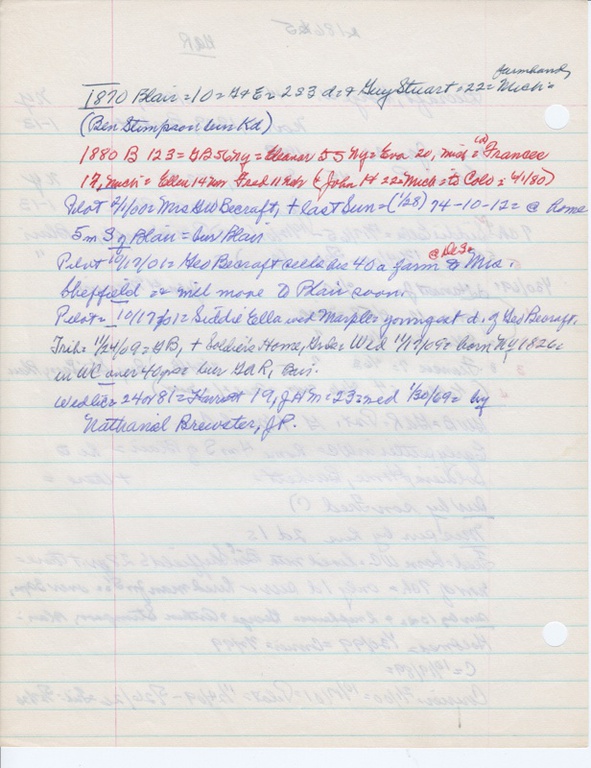 farmhand,
1870 Blair = 10 = G & E = 283 d. & Guy Stuart = 22 = Mich =
(Ben Stimpson = bur Kd)
1880 B 123 = GB 56 Ny = Eleanor 55 Ny = Eva 20, Mich = Frances
17, Mich = Ellen 14 Fred 11 (John H 22 = Mich = to Colo = 4/1/80)
Pilot 2/1/00 = Mrs Geo Becraft, + last Sun = (1/28) 74-10-12 = @ home
5 m S of Blair = bur Blair
@ Dec 3 =
Pilot 10/17/01 = Geo Becraft sells his 40 a farm to Mrs.
Sheffield & will move to Blair soon.
Pilot = 10/17/01 = Siddie Ella wed Marple = youngest d. of Geo Becraft.
Trib = 11/24/09 = GB, + Soldiers Home, Wed 11/17/09 = born Ny 1826 =
in WC over 40 yrs = bur GAR,
Wed lic = 24 or 81 = Harriet 19, J H M = 23 = wed 1/30/69 = by
Nathaniel Brewster, J.P.